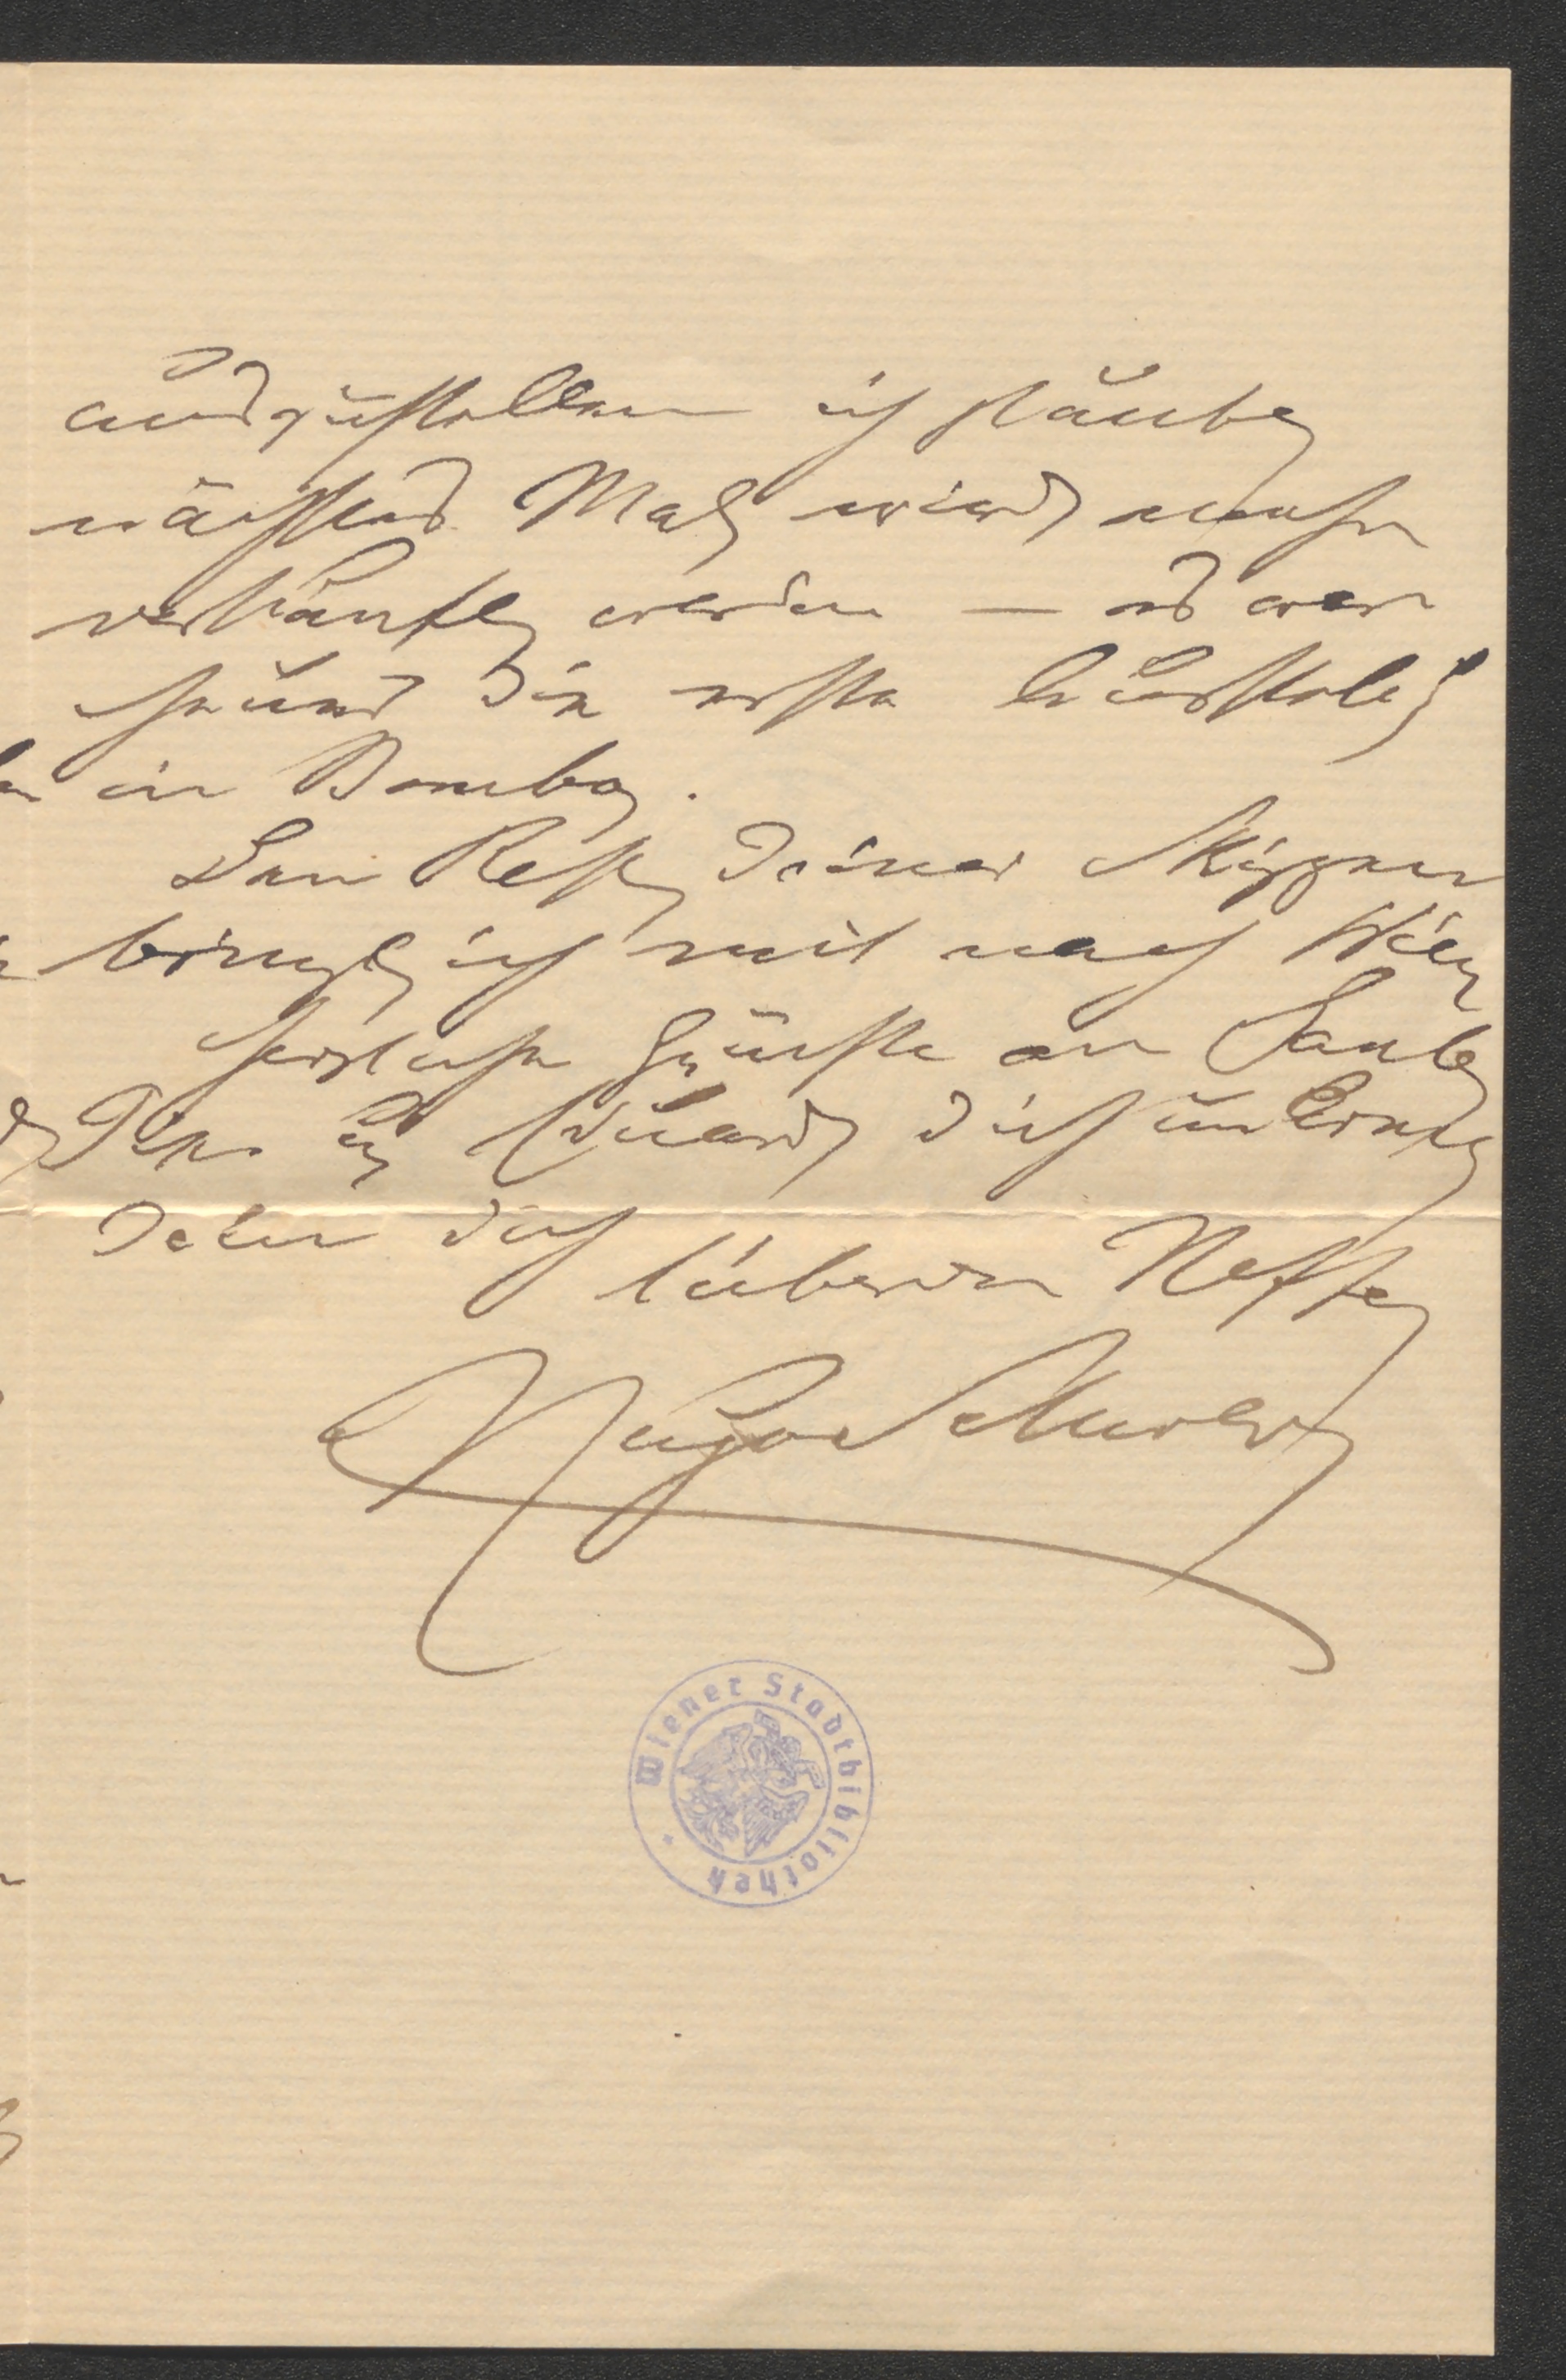 auszustellen ich glaube
nächstes Mal wird mehr
verkauft werden — es war
heuer die erste Ausstel¦
in Bombay.
Den Rest Deiner Skizzen
bringe ich mit nach Wien
herzliche Grüße an Tante
Tini u Eduard Dich umarmt
Dein Dich liebender Neffe
Hugo
Wiener Stadtbibliothek